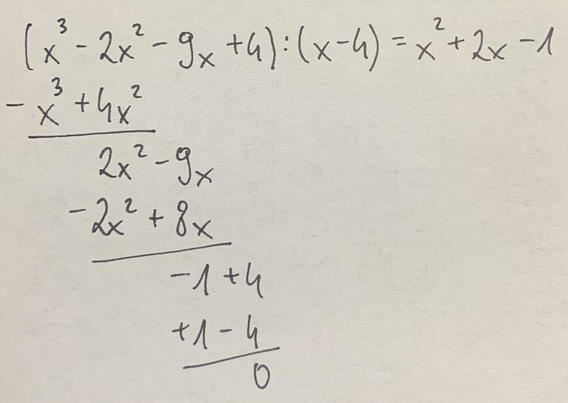 (x³ - 2x² - 9x + 4) : (x - 4) = x² + 2x - 1
- x³ + 4x²
2x² - 9x
- 2x² + 8x
- 1 + 4
+ 1 - 4
0